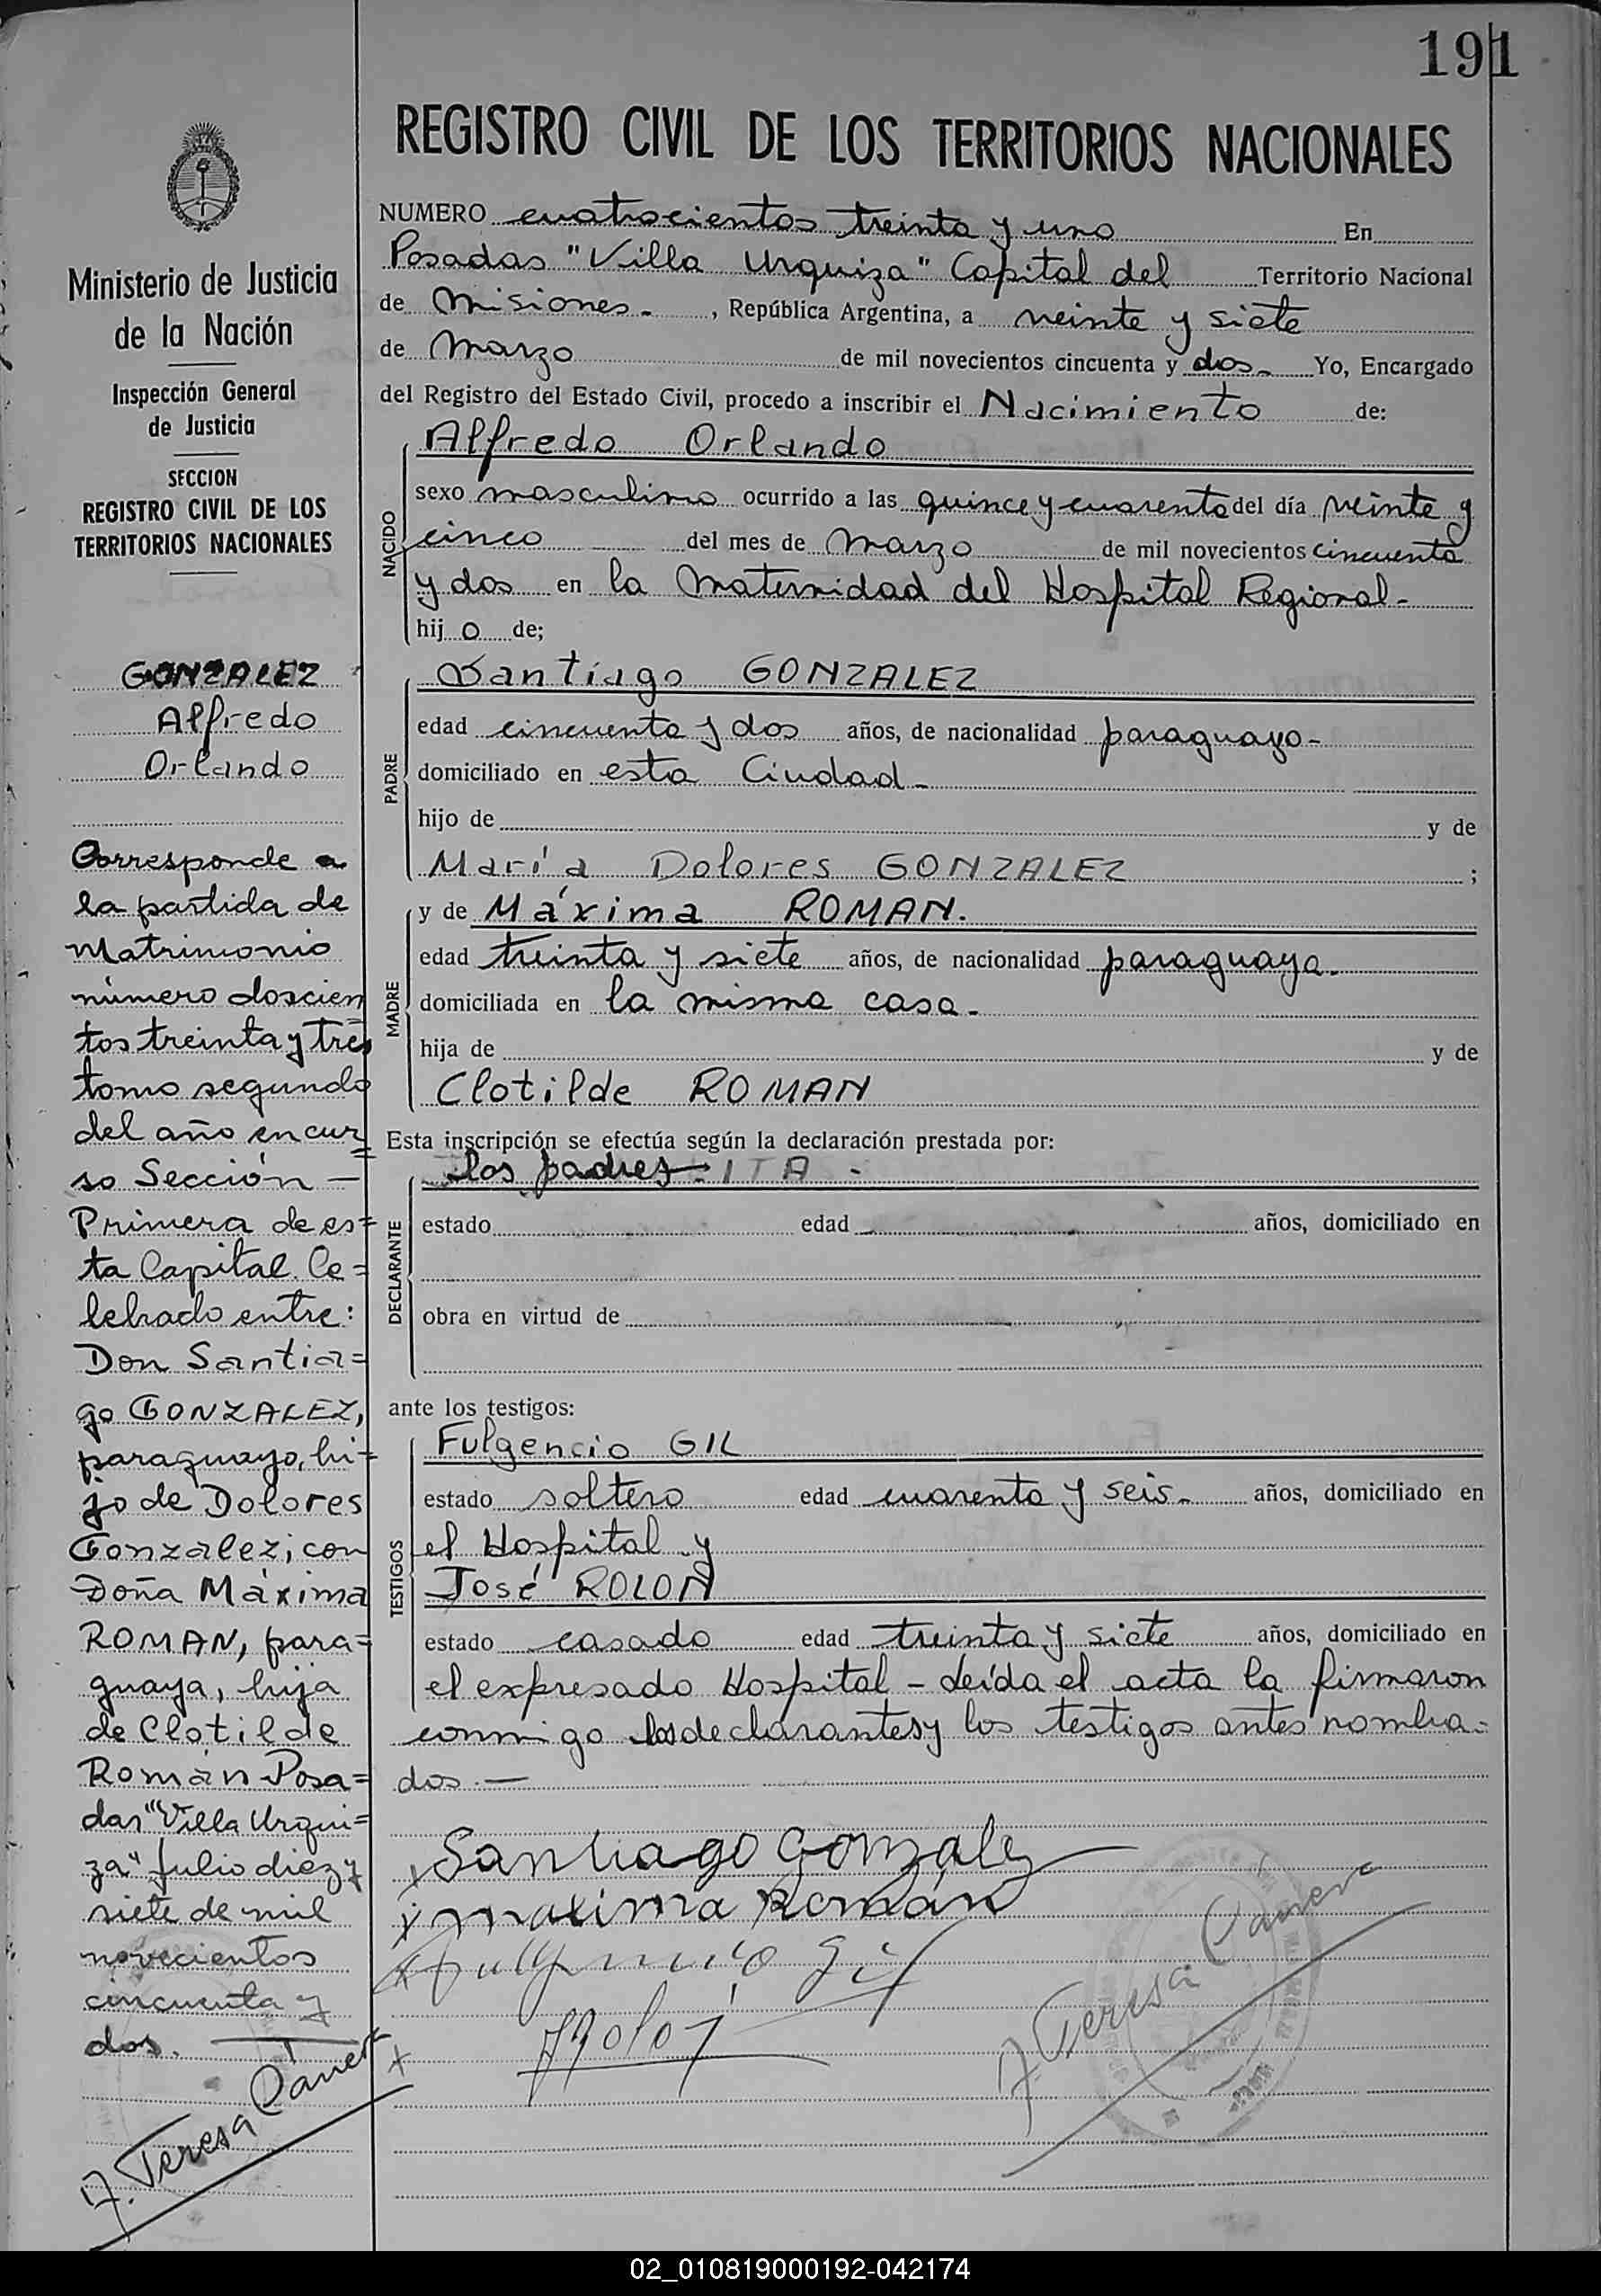 191
REGISTRO CIVIL DE LOS TERRITORIOS NACIONALES
Ministerio de Justicia
de la Nación
Inspección General
de Justicia
SECCION
REGISTRO CIVIL DE LOS
TERRITORIOS NACIONALES
GONZALEZ
Alfredo
Orlando
Corresponde a
la partida de
Matrimonio
número doscien
tos treinta y tres
tomo segundo
del año en cur=
so Sección —
Primera de es=
ta Capital. Ce=
lebrado entre:
Don Santia=
go GONZALEZ,
paraguayo, hi=
jo de Dolores
Gonzalez; con
Doña Máxima
ROMAN, para=
guaya, hija
de Clotilde
Román Posa=
das "Villa Urqui=
za" Julio diez y
siete de mil
novecientos
cincuenta y
dos.
A. Teresa
NUMERO cuatrocientos treinta y uno En
Posadas "Villa Urquiza" Capital del Territorio Nacional
de Misiones - , República Argentina, a veinte y siete
de Marzo de mil novecientos cincuenta y dos - Yo, Encargado
del Registro del Estado Civil, procedo a inscribir el Nacimiento de:
NACIDO
Alfredo Orlando
sexo masculino ocurrido a las quince y cuarenta del día veinte y
cinco del mes de Marzo de mil novecientos cincuenta
y dos en la Maternidad del Hospital Regional -
hijo de;
PADRE
Santiago GONZALEZ
edad cincuenta y dos años, de nacionalidad paraguayo -
domiciliado en esta Ciudad -
hijo de y de
María Dolores GONZALEZ ;
MADRE
y de Máxima ROMAN.
edad treinta y siete años, de nacionalidad paraguaya -
domiciliada en la misma casa -
hija de y de
Clotilde ROMAN
Esta inscripción se efectúa según la declaración prestada por:
DECLARANTE
los padres
estado edad años, domiciliado en
obra en virtud de
ante los testigos:
TESTIGOS
Fulgencio GIL
estado soltero edad cuarenta y seis - años, domiciliado en
el Hospital y
José ROLON
estado casado edad treinta y siete años, domiciliado en
el expresado Hospital - Leída el acta la firmaron
conmigo los declarantes y los testigos antes nombra=
dos. —
Santiago Gonzalez
maxima Román
Fulgencio Gil
A Teresa
02_010819000192-042174